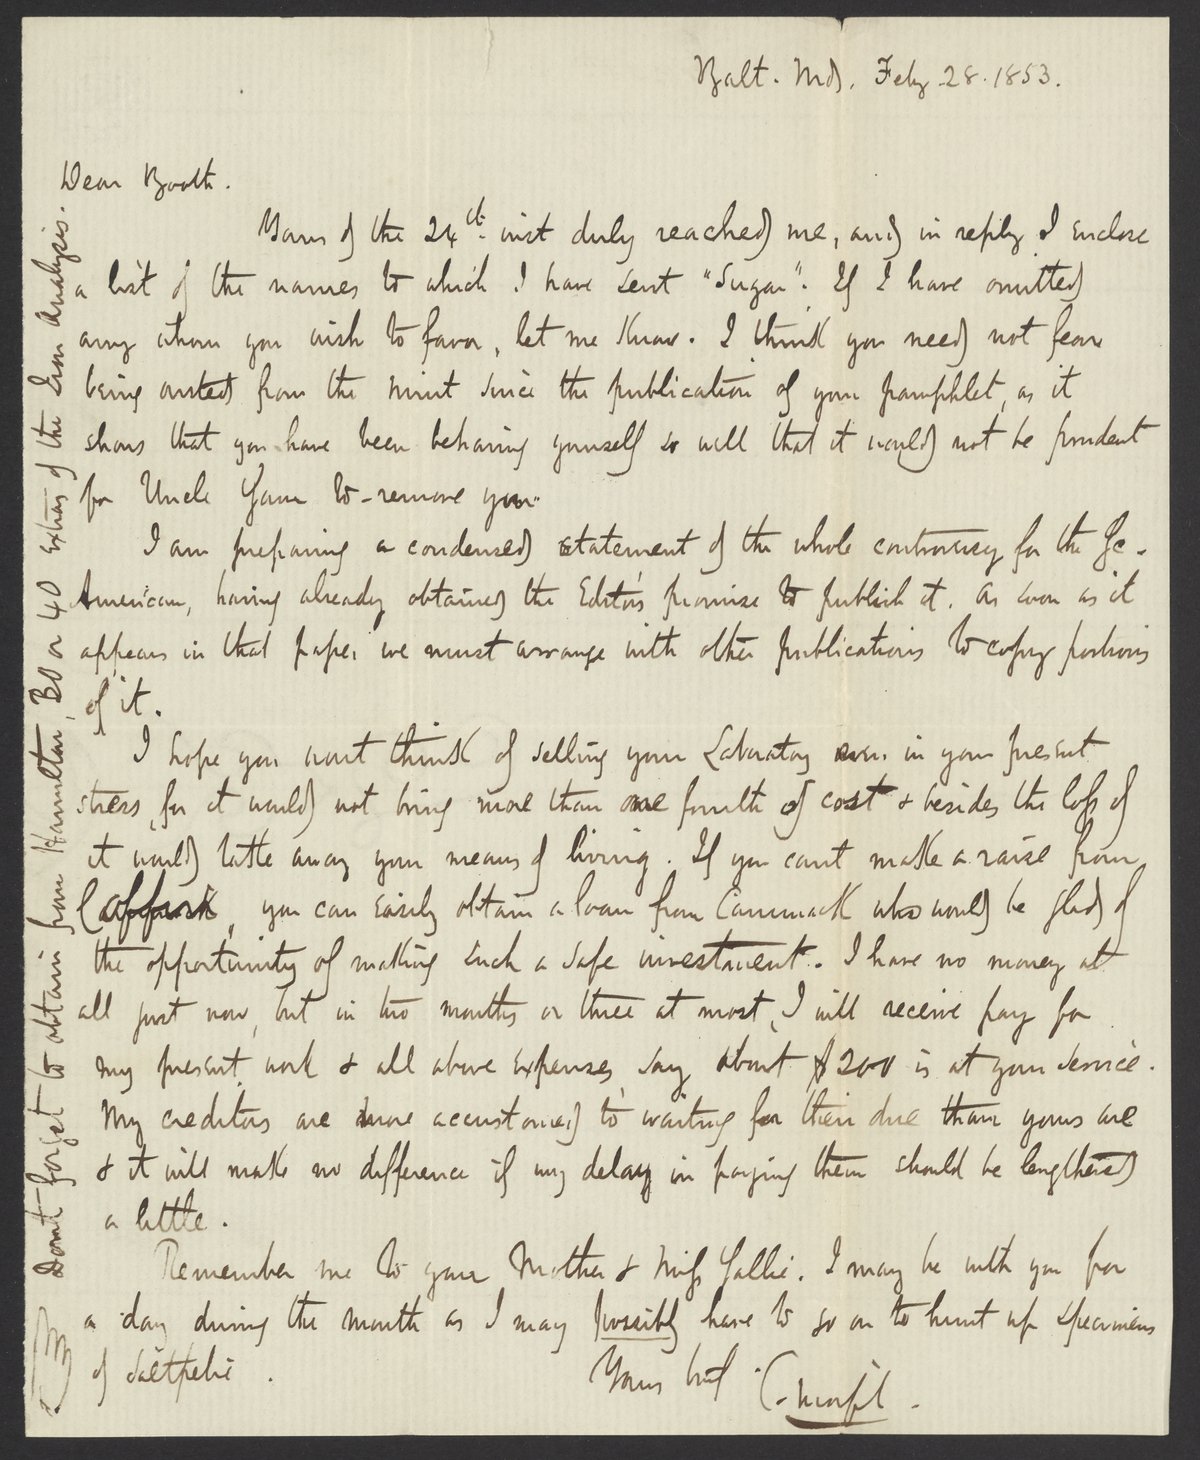 Balt. Md. Feby 28. 1853.
Dear Booth.
Yours of the 24th inst duly reached me, and in reply I enclose
a list of the names to which I have sent "Sugar". If I have omitted
any whom you wish to favor, let me know. I think you need not fear
being ousted from the mint since the publication of your pamphlet, as it
shows that you have been behaving yourself so well that it would not be prudent
for Uncle Sam to remove you.
I am preparing a condensed statement of the whole controversy for the Sc.
American, having already obtained the Editors promise to publish it. As soon as it
appears in that paper we must arrange with other publications to copy portions
of it.
I hope you wont think of selling your Laboratory even in your present
stress, for it would not bring more than one fourth of cost & besides the loss of
it would take away your means of living. If you cant make a raise from
you can easily obtain a loan from Cammack who would be glad of
the opportunity of making such a safe investment. I have no money at
all just now, but in two months or three at most, I will receive pay for
my present work & all above expenses, say about $200 is at your service.
My creditors are more accustomed to waiting for their due than yours are
& it will make no difference if my delay in paying them should be lengthened
a little.
Remember me to your Mother & Miss Sallie. I may be with you for
a day during the month as I may possibly have to go on to hunt up specimens
of saltpetre.
Yours truly C. Morfit.
Dont forget to obtain from Hamilton, 30 or 40 extras of the Iron Analysis.